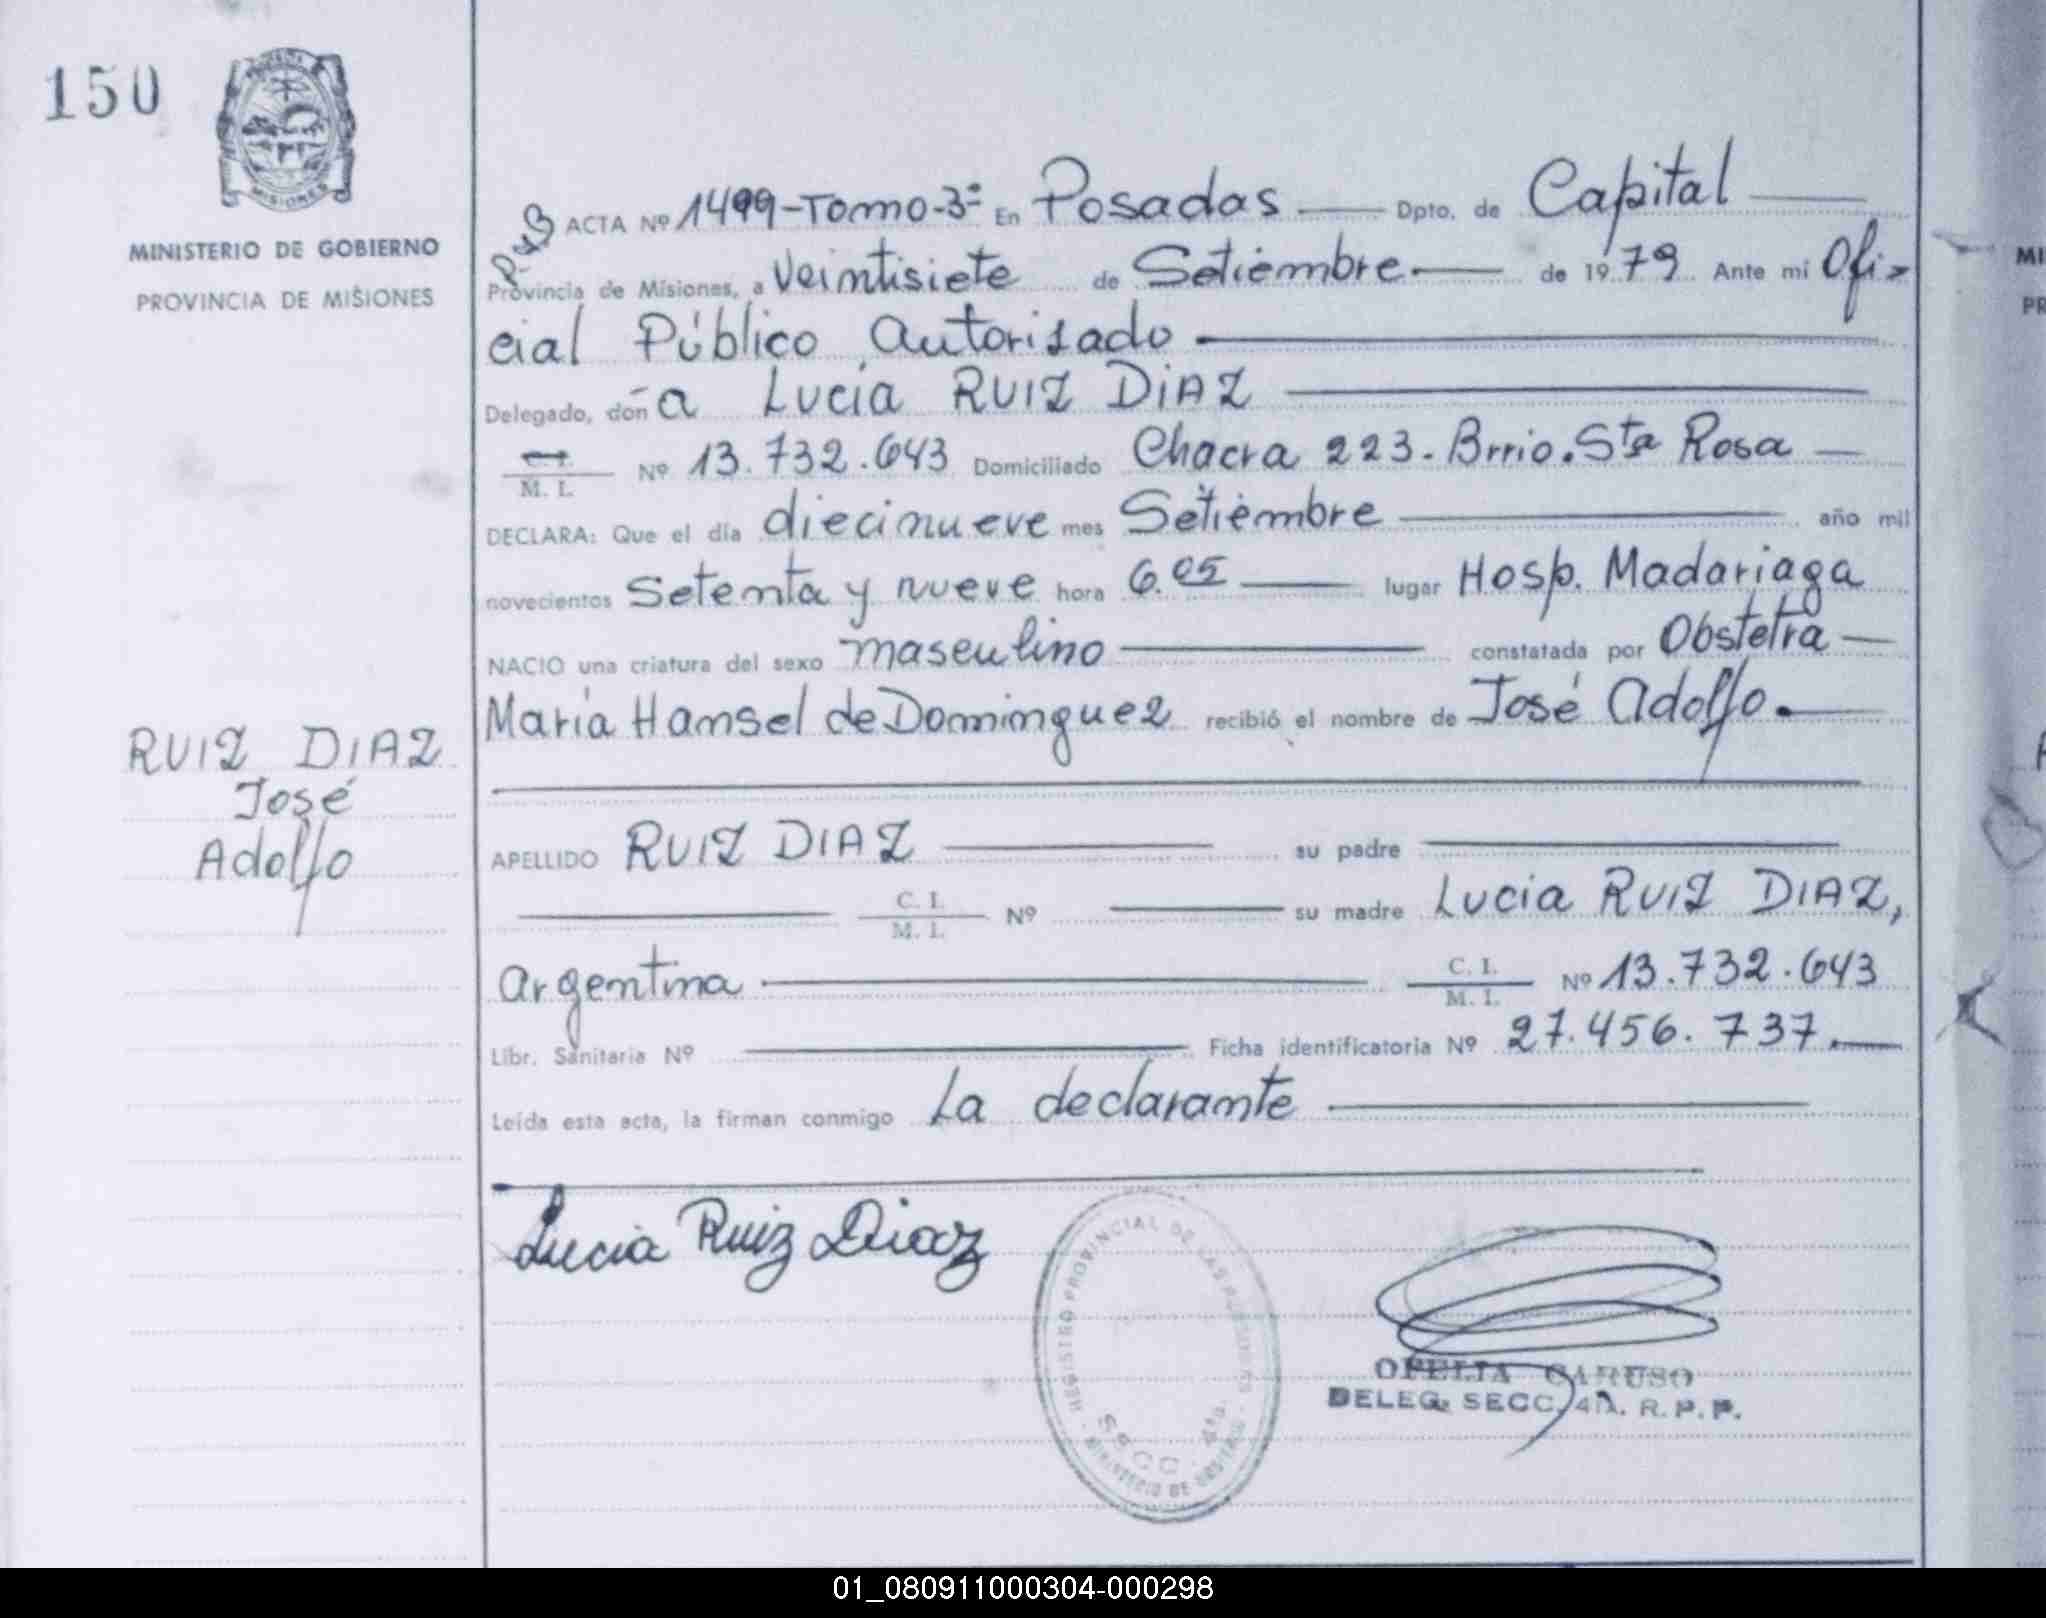 150
MISIONES
MINISTERIO DE GOBIERNO
PROVINCIA DE MISIONES
RUIZ DIAZ
José
Adolfo
ACTA Nº 1499-Tomo-3º En Posadas Dpto. de Capital
Provincia de Misiones, a veintisiete de Setiembre de 1979 Ante mí Ofi-
cial Público Autorisado
Delegado, doña Lucía RUIZ DIAZ
C. I. / M. I. Nº 13.732.643 Domiciliado Chacra 223. Brrio. Sta Rosa
DECLARA: Que el día diecinueve mes Setiembre año mil
novecientos setenta y nueve hora 6.05 lugar Hosp. Madariaga
NACIO una criatura del sexo masculino constatada por Obstetra
María Hansel de Dominguez recibió el nombre de José Adolfo.
APELLIDO RUIZ DIAZ su padre
C. I. / M. I. Nº su madre Lucia RUIZ DIAZ,
argentina C. I. / M. I. Nº 13.732.643
Libr. Sanitaria Nº Ficha identificatoria Nº 27.456.737.
Leída esta acta, la firman conmigo La declarante
Lucia Ruiz Diaz
REGISTRO PROVINCIAL DE LAS PERSONAS
SECC. 4ta.
MINISTERIO DE GOBIERNO
OFELIA CARUSO
DELEG. SECC. 4A. R. P. P.
01_080911000304-000298